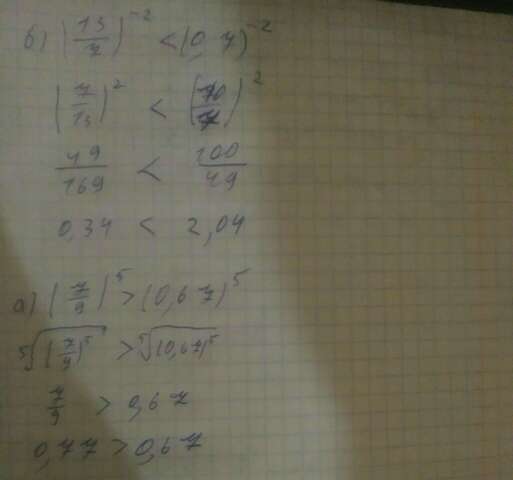 б) (13/7)^-2 < (0,7)^-2
(7/13)^2 < (10/7)^2
49/169 < 100/49
0,34 < 2,04
а) (7/9)^5 > (0,67)^5
⁵√(7/9)^5 > ⁵√(0,67)^5
7/9 > 0,67
0,77 > 0,67